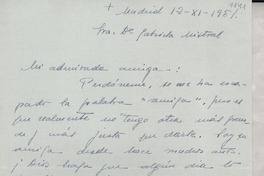 + Madrid 12-XI-195
Sra. Da Gabriela Mistral
Mi admirada amiga:
Perdóneme, se me ha esca-
pado la palabra "amiga", pues
que realmente no tengo otra más
y más justa que darla. Soy su
amiga desde hace mucho
¡Dios haga que algún día lo